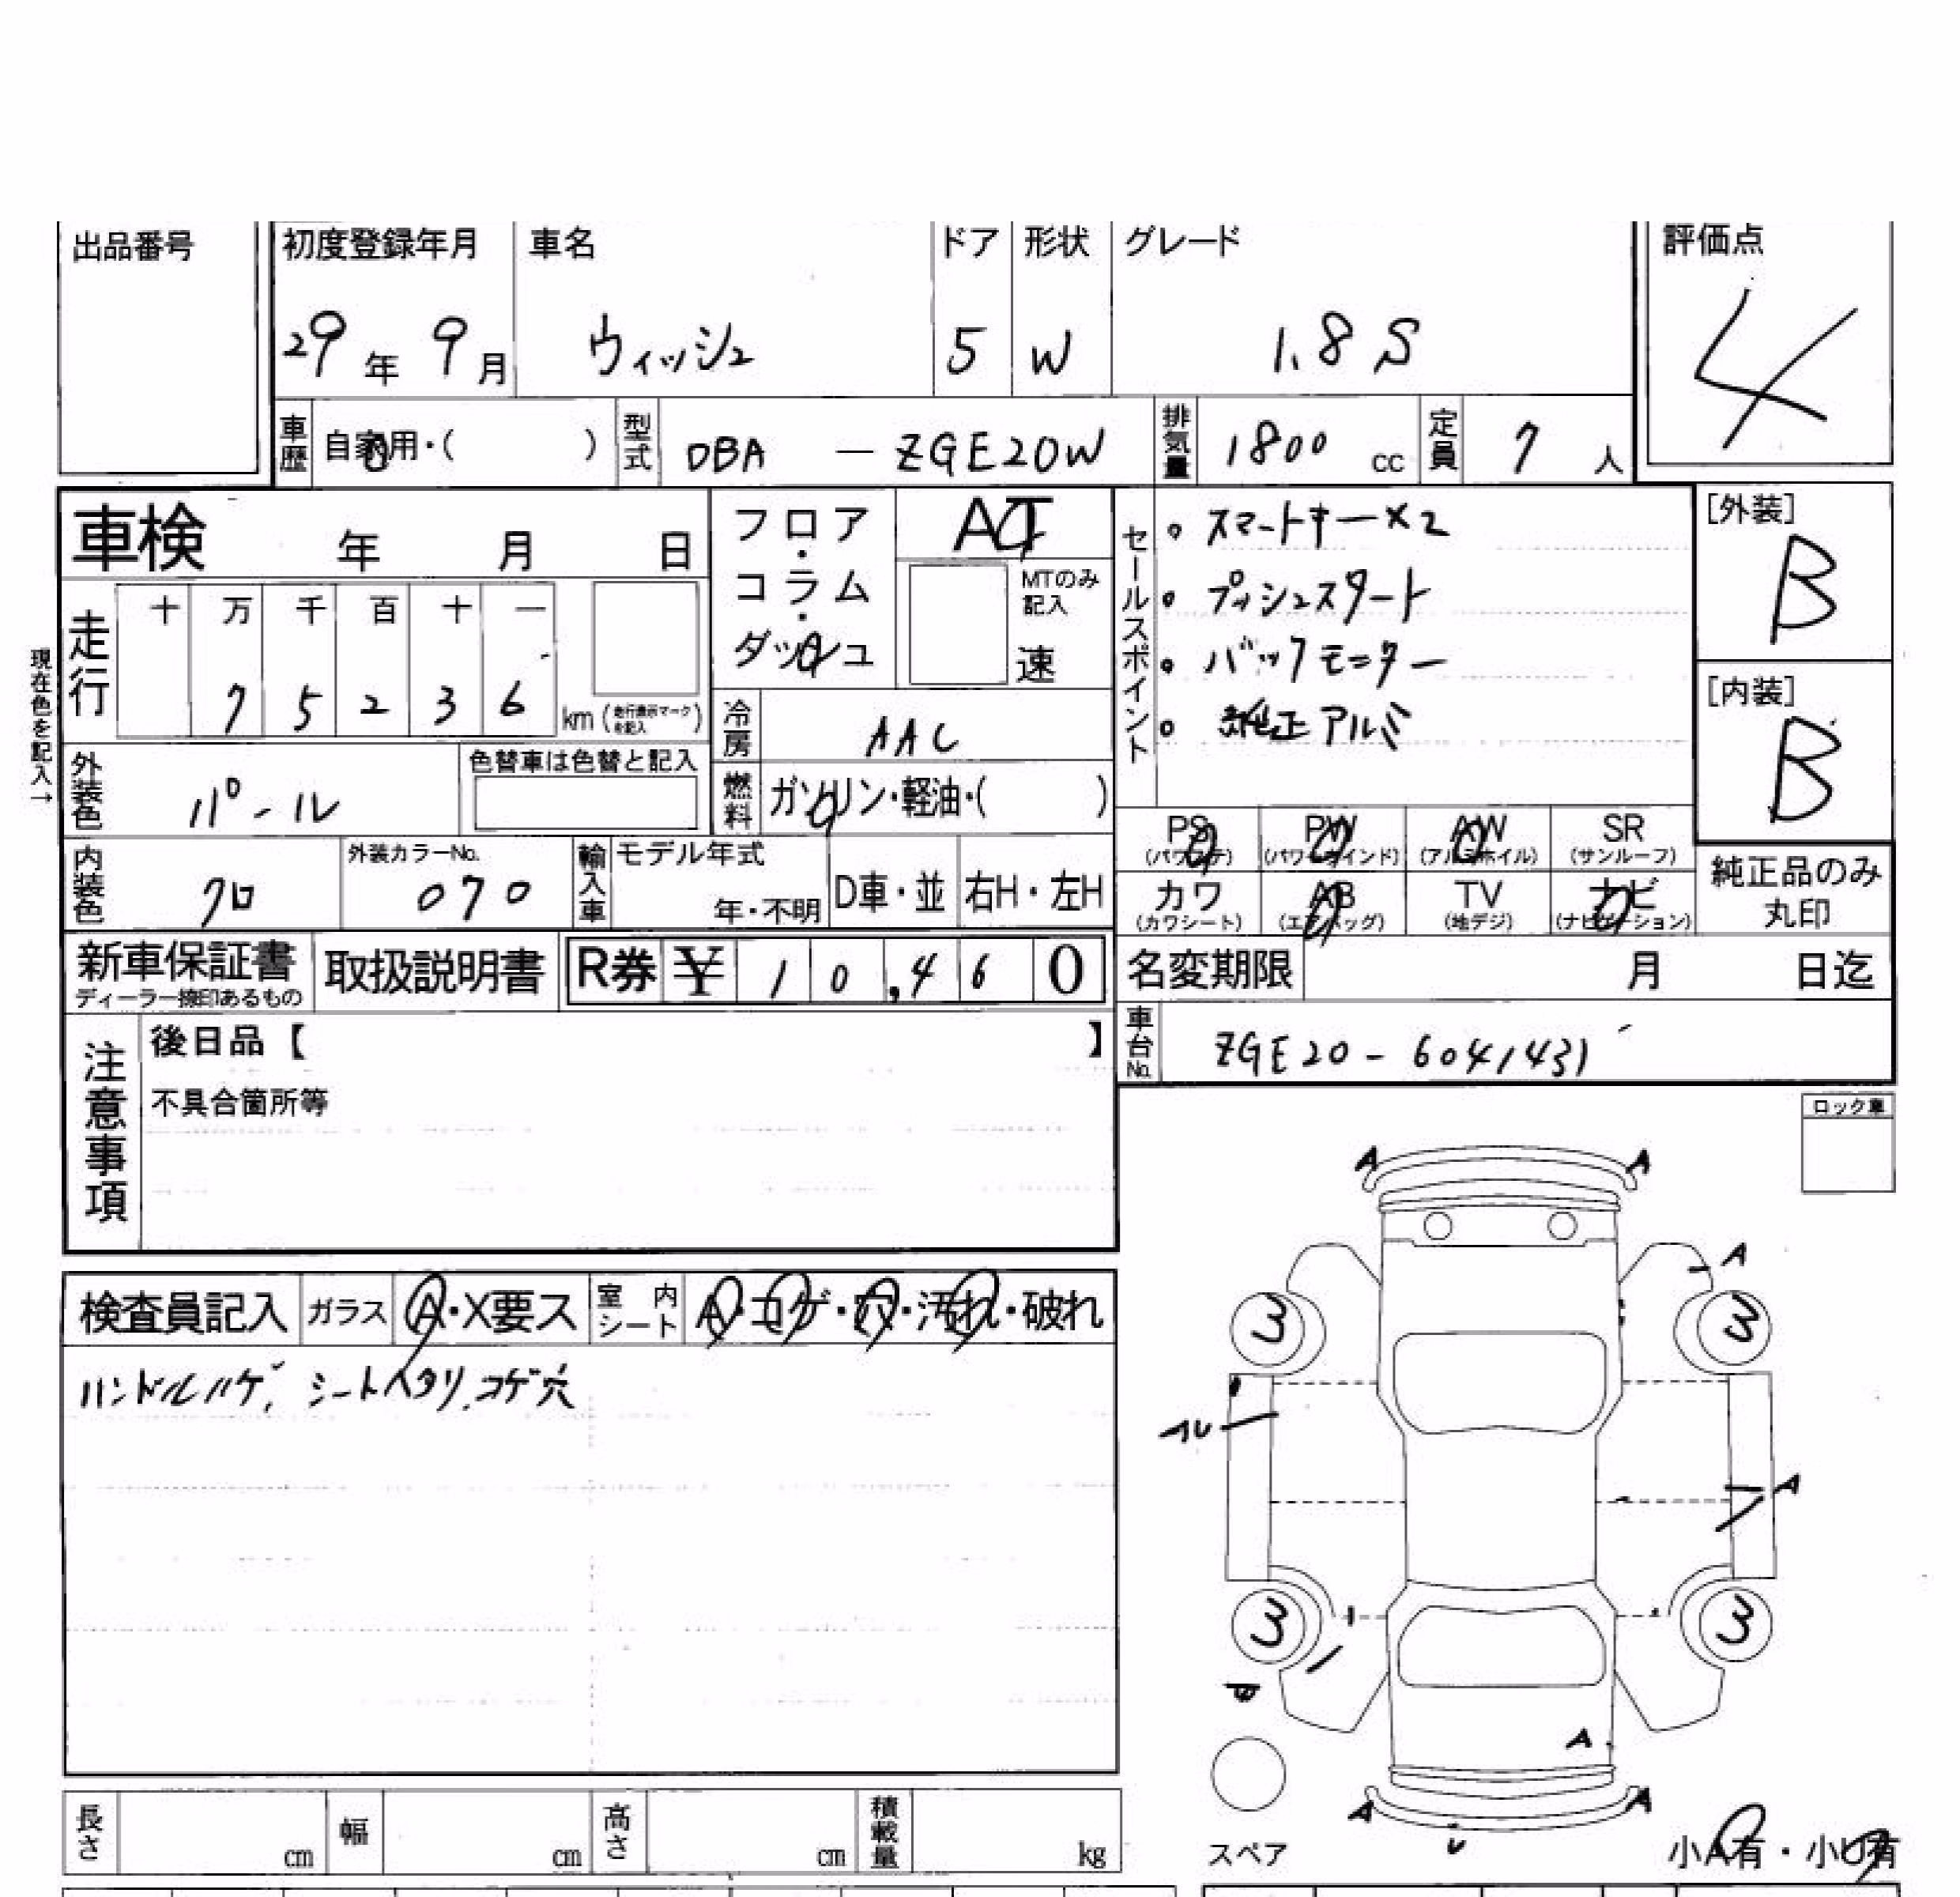 出品番号
初度登録年月 車名 ドア 形状 グレード 評価点
29年 9月 ウィッシュ 5 W 1.8S 4
車歴 自家用・( ) 型式 DBA — ZGE20W 排気量 1800 cc 定員 7人
車検 年 月 日
フロア・コラム・ダッシュ AT
MTのみ記入 速
セールスポイント
・スマートキー×2
・プッシュスタート
・バックモニター
・純正アルミ
[外装] B
[内装] B
現在色を記入→
走行 十 万 千 百 十 一
7 5 2 3 6 km (走行表示マークを記入)
冷房 AAC
外装色 パール 色替車は色替と記入
燃料 ガソリン・軽油・( )
PS (パワステ) PW (パワーウインド) AW (アルミホイル) SR (サンルーフ)
カワ (カワシート) AB (エアバッグ) TV (地デジ) ナビ (ナビゲーション)
純正品のみ丸印
内装色 クロ 外装カラーNo. 070 輸入車 モデル年式 年・不明 D車・並 右H・左H
新車保証書 ディーラー捺印あるもの 取扱説明書 R券 ¥ 10,460
名変期限 月 日迄
車台No. ZGE20-6041431
注意事項
後日品【 】
不具合箇所等
ロック車
検査員記入 ガラス A・X要ス 室内シート A・コゲ・穴・汚れ・破れ
ハンドルハゲ、シートヘタリ、コゲ穴
A A
A
3 3
A
3 3
A
A A
スペア
小A有・小U有
長さ cm 幅 cm 高さ cm 積載量 kg